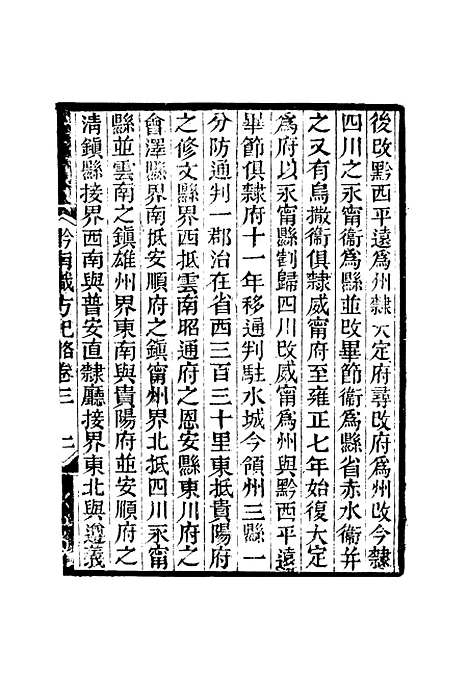 後改黔西平遠為州隸大定府尋改府為州改今隸
四川之永甯衞為縣並改畢節衞為縣省赤水衞并
之又有烏撒衞俱隸威甯府至雍正七年始復大定
為府以永甯縣割歸四川改威甯為州與黔西平遠
畢節俱隸府十一年移通判駐水城今領州三縣一
分防通判一郡治在省西三百三十里東抵貴陽府
之修文縣界西抵雲南昭通府之恩安縣東川府之
會澤縣界南抵安順府之鎮甯州界北抵四川永甯
縣並雲南之鎮雄州界東南與貴陽府並安順府之
清鎮縣接界西南與普安直隸廳接界東北與遵義
黔南職方紀略卷三 二